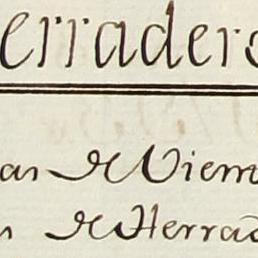 erradero
as de Viem
s de Herrad